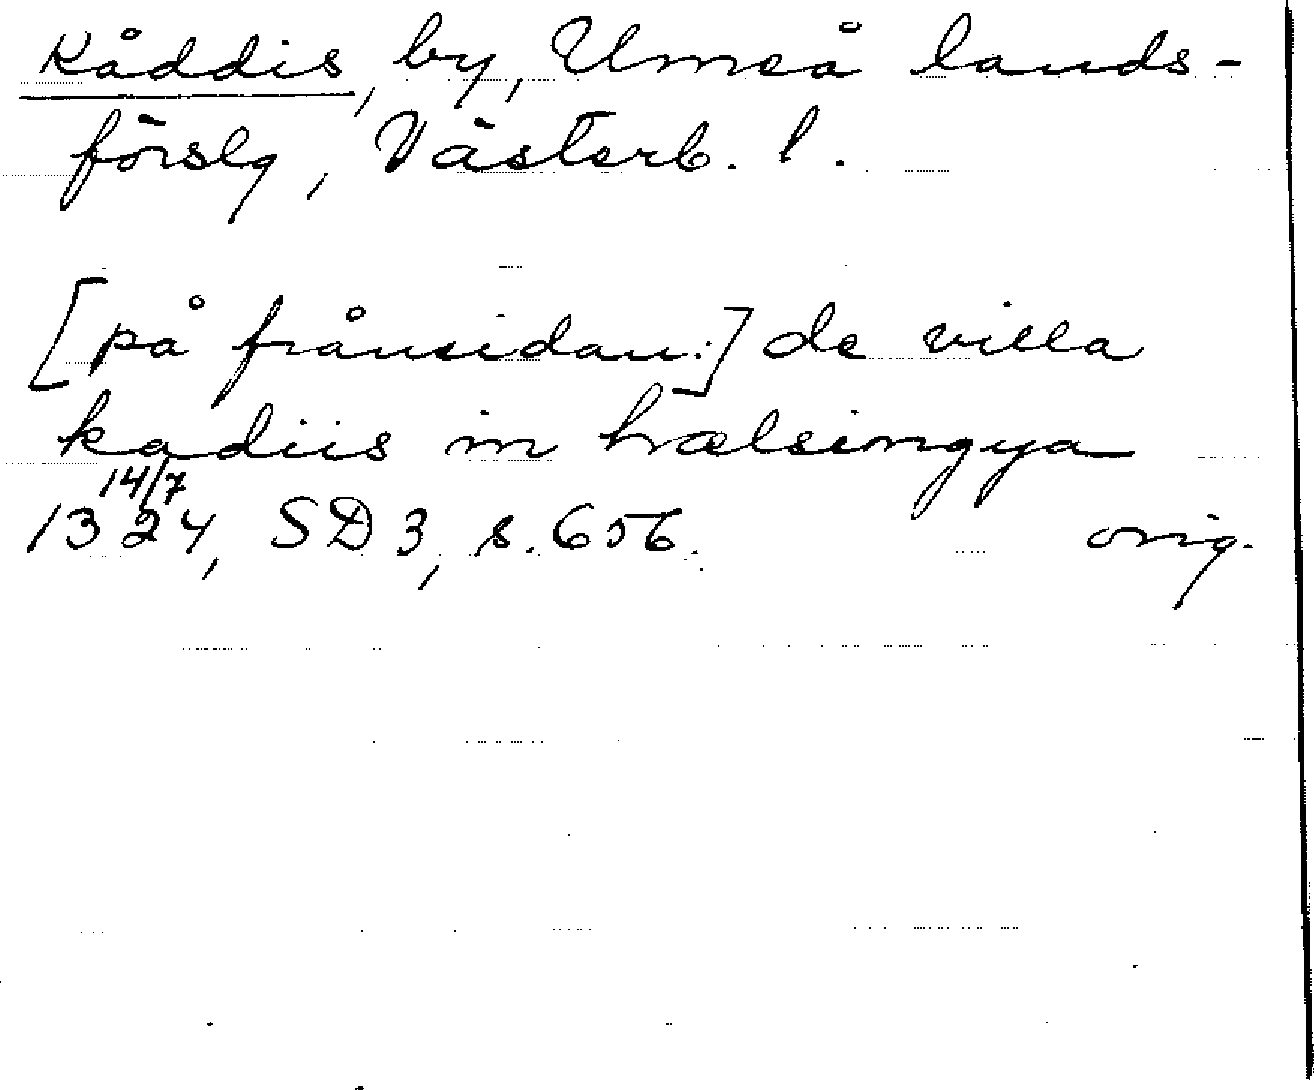 Kåddis, by, Umeå lands-
förslg, Västerb. l.
[på frånsidan:] de villa
kadiis in hælsingya
14/7
1324, SD 3, s. 656. orig.